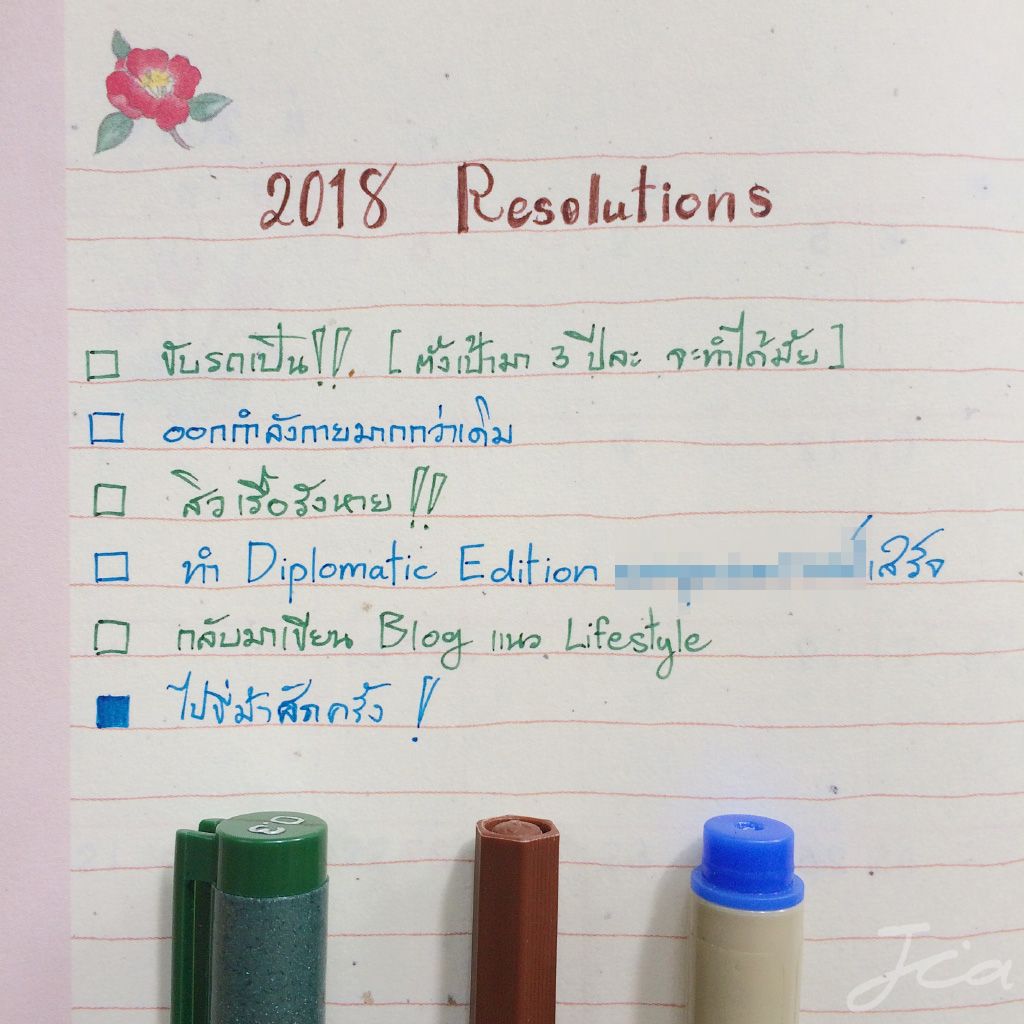 2018 Resolutions
ขับรถเป็น!!. [ตั้งเป้ามา 3 ปีละ จะทำได้มั้ย]
ออกกำลังกายมากกว่าเดิม
สิวเรื้อรังหาย!!
ทำ Diplomatic Edition เสร็จ
กลับมาเขียน Blog แนว Lifestyle
ไปขี่ม้าสักครั้ง !
0.3
Jca